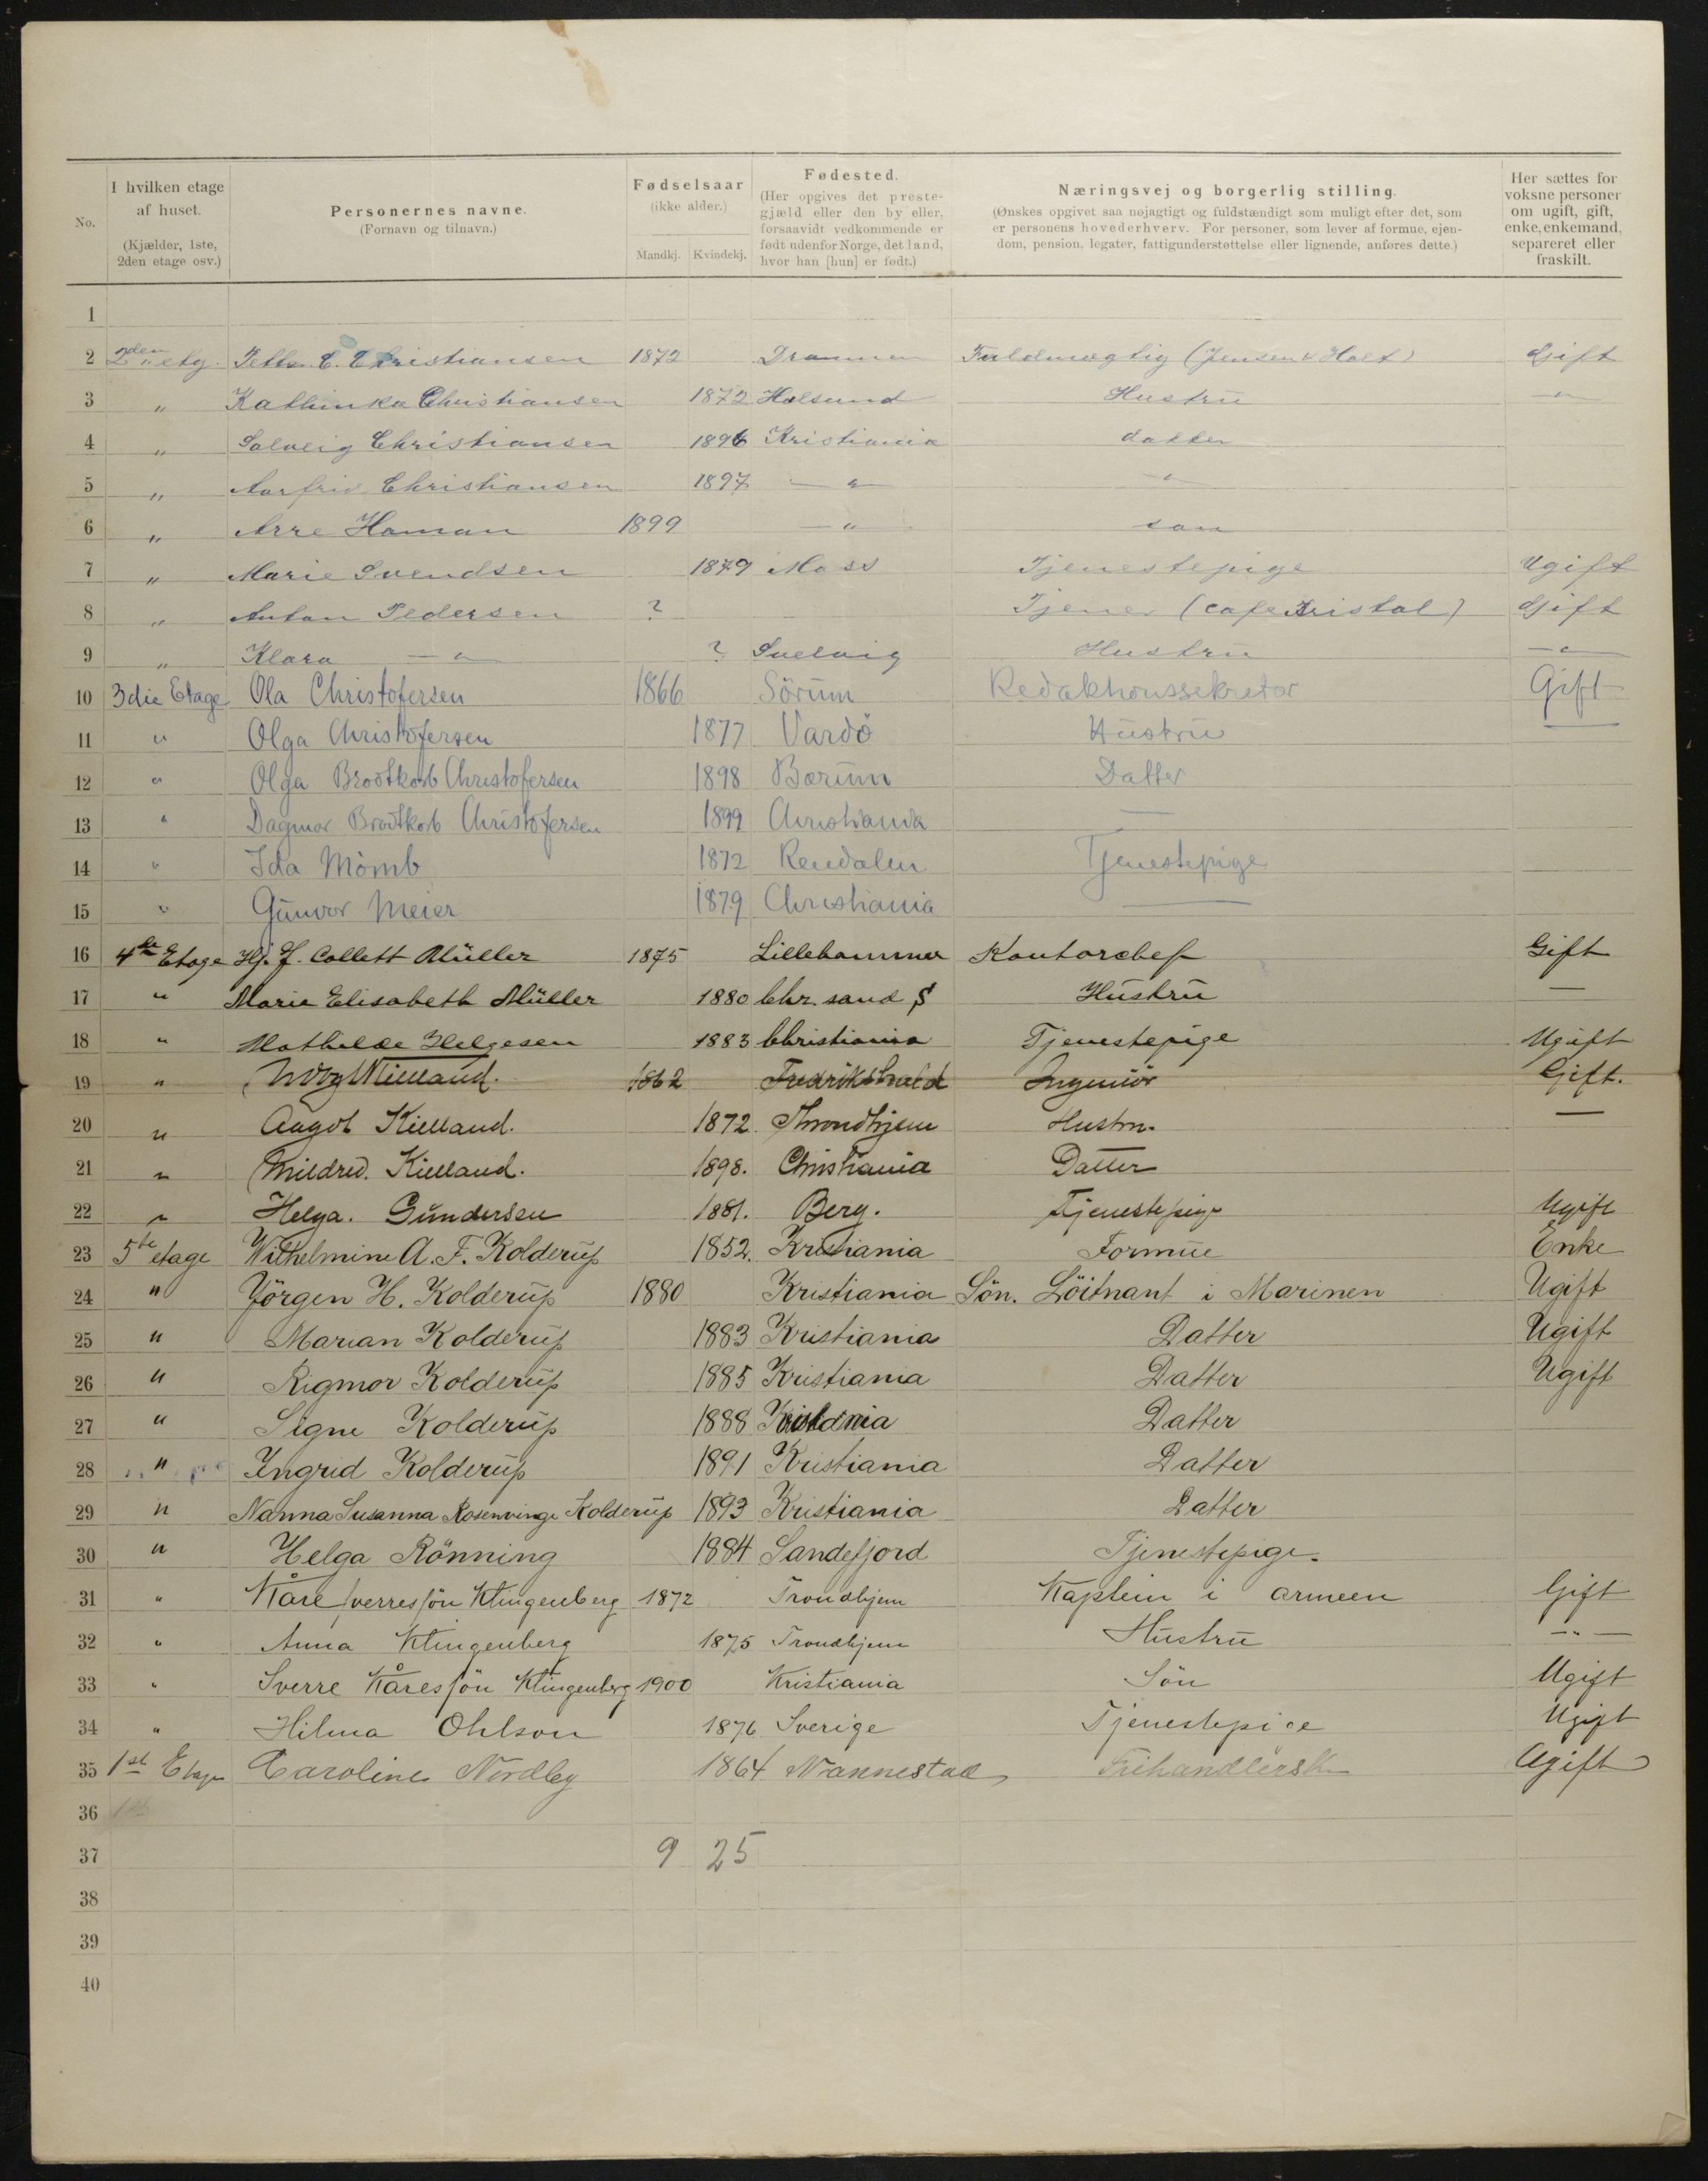 No.
I hvilken etage
af huset.
(Kjælder, 1ste,
2den etage osv.)
Personernes navne.
(Fornavn og tilnavn.)
Fødselsaar
(ikke alder.)
Mandkj. Kvindekj.
Fødested.
(Her opgives det preste-
gjæld eller den by eller,
forsaavidt vedkommende er
født udenfor Norge, det land,
hvor han [hun] er født.)
Næringsvej og borgerlig stilling.
(Ønskes opgivet saa nøjagtigt og fuldstændigt som muligt efter det, som
er personens hovederhverv. For personer, som lever af formue, ejen-
dom, pension, legater, fattigunderstøttelse eller lignende, anføres dette.)
Her sættes for
voksne personer
om ugift, gift,
enke, enkemand,
separeret eller
fraskilt.
1
2 2den etg. C. Christiansen 1872 Drammen Fuldmægtig (Jensen & Holt) Gift
3 " Kathinka Christiansen 1872 Hustru "
4 " Solveig Christiansen 1896 Kristiania datter
5 " Christiansen 1897 — " — "
6 " Haman 1899 — " —
7 " Marie Svendsen 1879 Moss Tjenestepige Ugift
8 " Anton Pedersen ? Tjener (cafe Kristal) Gift
9 " Klara — " — ? Svelvig Hustru — " —
10 3die Etage Ola Christofersen 1866 Sörum Redaktionssekretær Gift
11 " Olga Christofersen 1877 Vardö Hustru —
12 " Olga Brodtkorb Christofersen 1898 Bærum Datter
13 " Dagmar Brodtkorb Christofersen 1899 Christiania —
14 " Ida Mömb 1872 Rendalen Tjenestepige
15 " Gunvor Meier 1879 Christiania —
16 4de Etage Hj. J. Collett Müller 1875 Lillehammer Kontorchef Gift
17 " Marie Elisabeth Müller 1880 Chr. sand S Hustru —
18 " Mathilde Helgesen 1883 Christiania Tjenestepige Ugift
19 " Kielland. 1862 Fredrikshald Ingeniör Gift.
20 " Aagot Kielland. 1872 Throndhjem Hustru. —
21 " Mildred. Kielland. 1898. Christiania Datter
22 " Helga. Gundersen 1881. Berg. Tjenestepige Ugift
23 5te etage Wilhelmine A. F. Kolderup 1852. Kristiania Formue Enke
24 " Jörgen H. Kolderup 1880 Kristiania Sön. Löitnant i Marinen Ugift
25 " Marian Kolderup 1883 Kristiania Datter Ugift
26 " Rigmor Kolderup 1885 Kristiania Datter Ugift
27 " Signe Kolderup 1888 Kristiania Datter
28 " Ingrid Kolderup 1891 Kristiania Datter
29 " Nanna Susanna Rosenvinge Kolderup 1893 Kristiania Datter
30 " Helga Rönning 1884 Sandefjord Tjenestepige.
31 " Kåre Sverressön Klingenberg 1872 Trondhjem Kaptein i armeen Gift
32 " Anna Klingenberg 1875 Trondhjem Hustru — " —
33 " Sverre Kåressön Klingenberg 1900 Kristiania Sön Ugift
34 " Hilma Ohlson 1876 Sverige Tjenestepige Ugift
35 1st Etage Caroline Nordby 1864 Nannestad Ugift
36
37 9 25
38
39
40